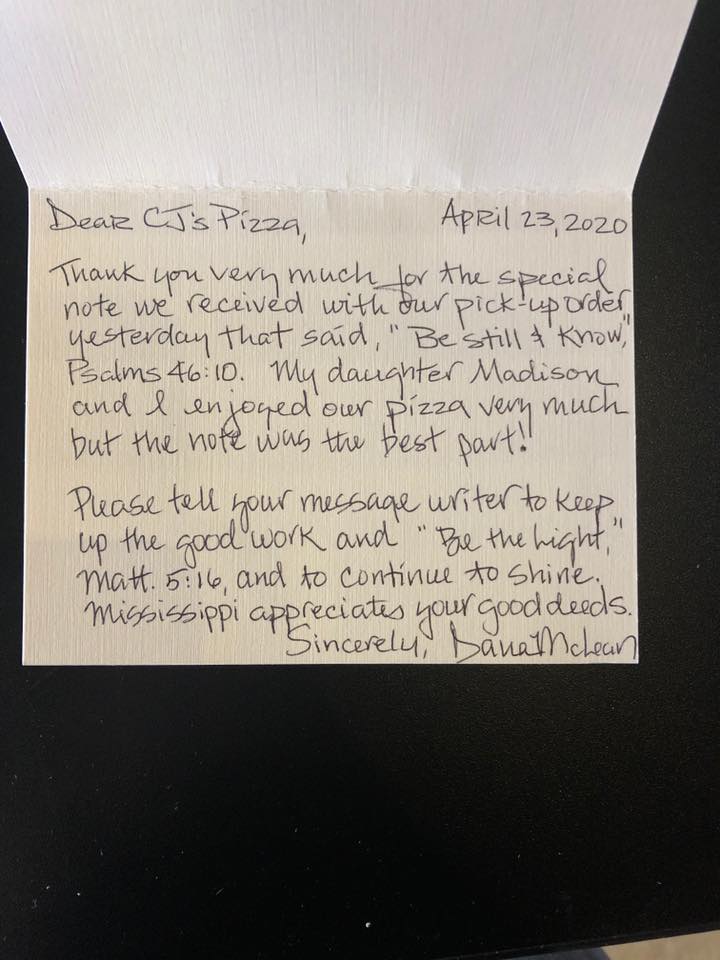 Dear CJ's Pizza, April 23, 2020
Thank you very much for the special
note we received with our pick-up order
yesterday that said, "Be still & Know,"
Psalms 46:10. My daughter Madison
and I enjoyed our pizza very much
but the note was the best part!
Please tell your message writer to keep
up the good work and "Be the Light,"
Matt. 5:16, and to continue to shine.
Mississippi appreciates your good deeds.
Sincerely, Dana McLean